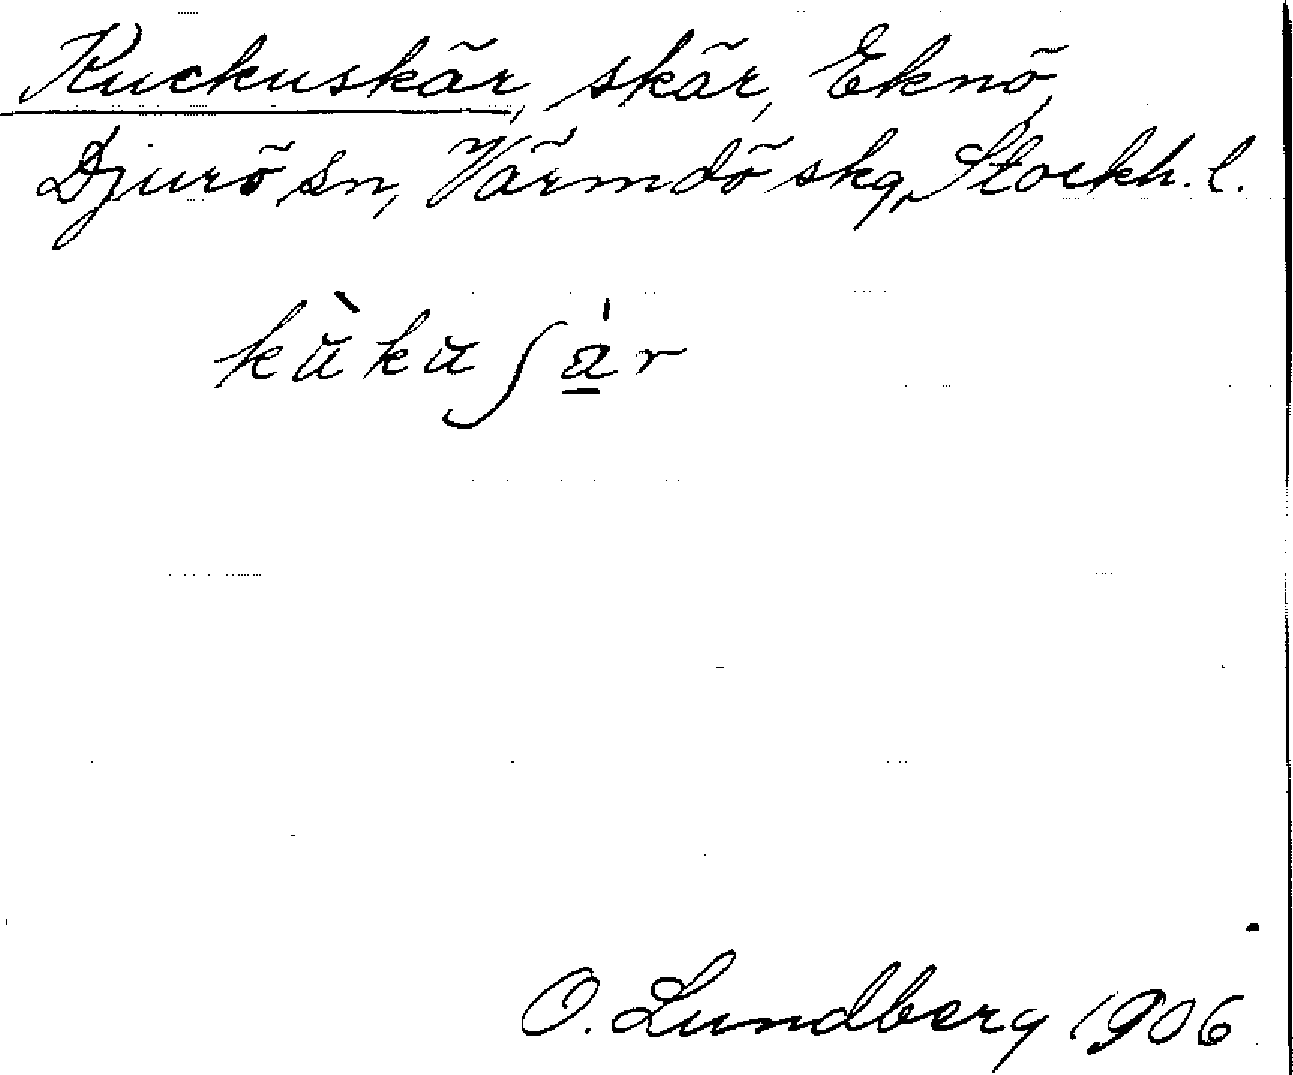 Kuckuskär, skär, Eknö,
Djurö sn, Värmdö skg, Stockh. l.
kùkuʃa̲̍r
O. Lundberg 1906